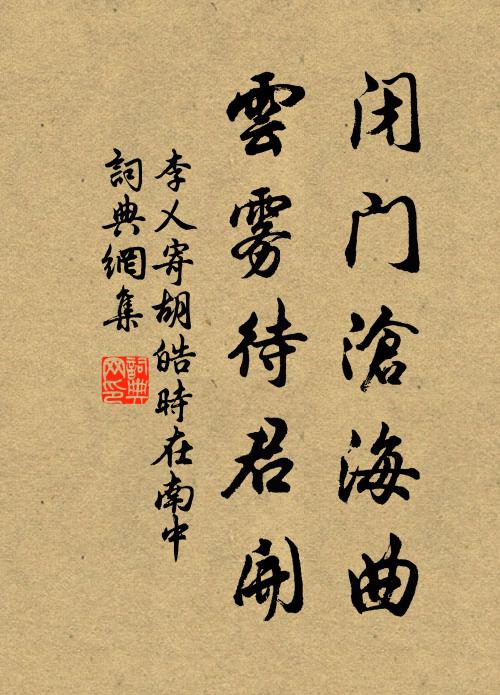 闭门滄海曲
雲雾待君開
李乂寄胡皓時在南中
詞典網集
詞典
网印